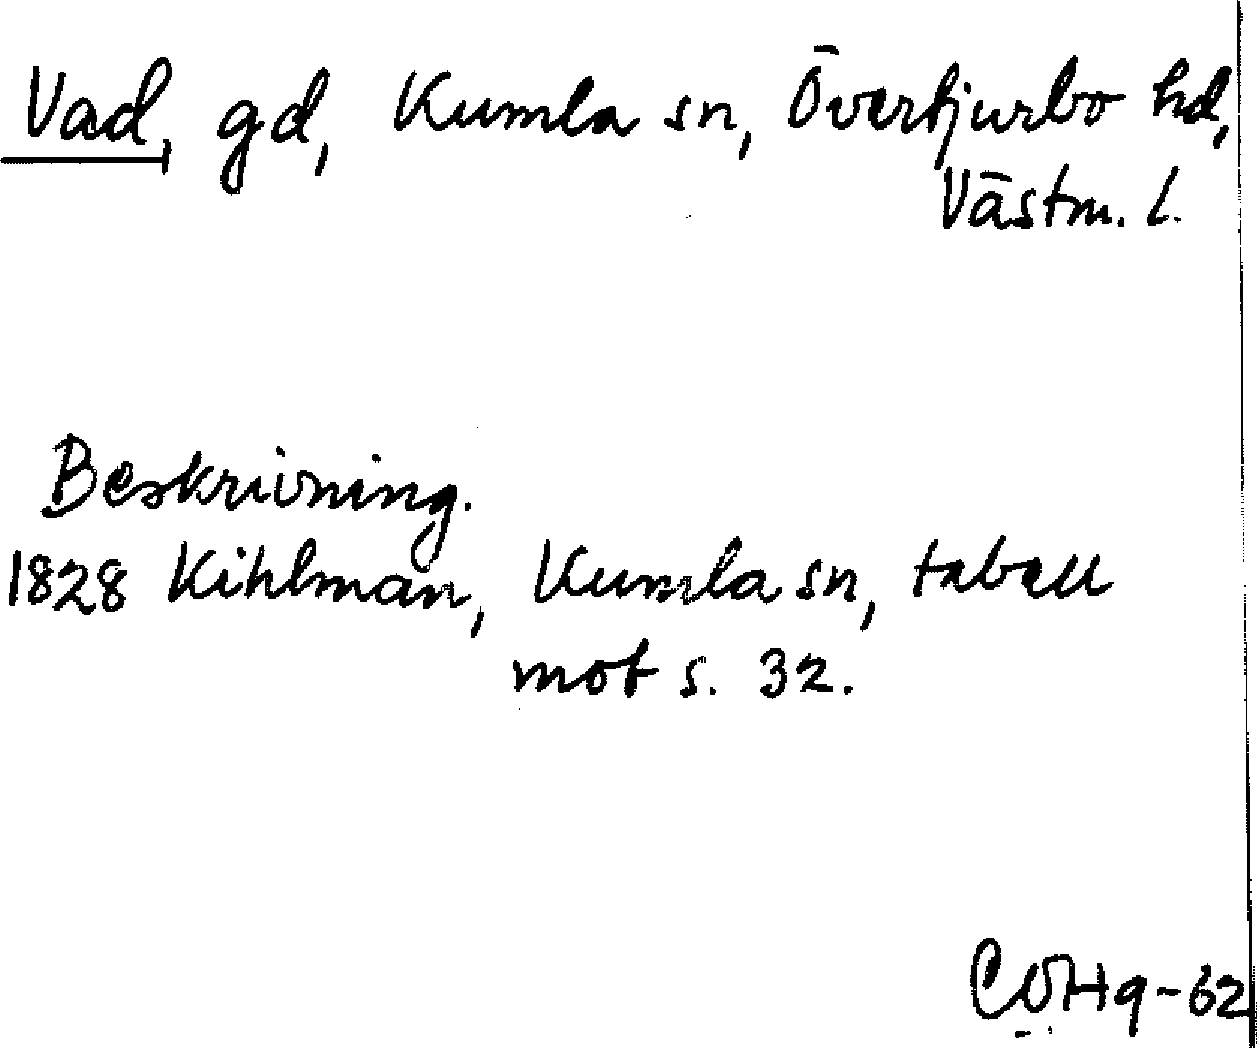 Vad, gd, Kumla sn, Övertjurbo hd,
Västm. l.
Beskrivning.
1828 Kihlman, Kumla sn, tabell
mot s. 32.